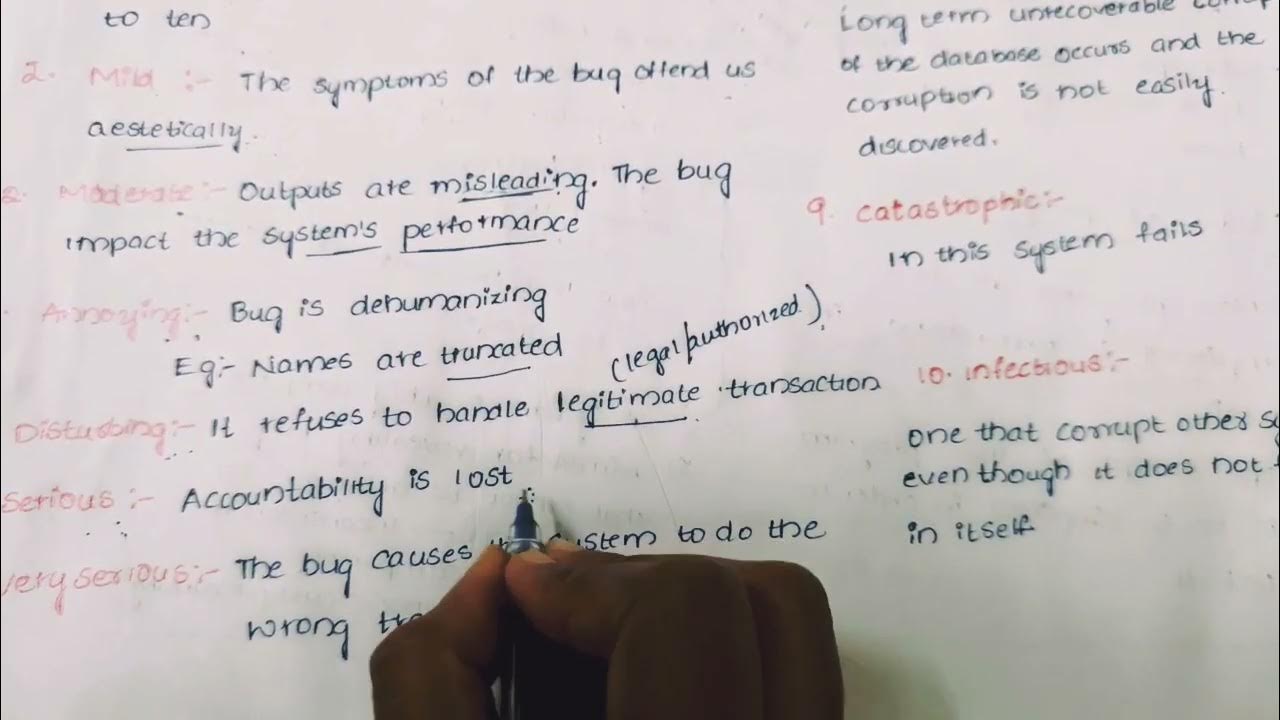 to ten
2. Mild :- The symptoms of the bug offend us
aestetically.
Moderate:- Outputs are misleading. The bug
impact the system's performance
Annoying:- Bug is dehumanizing
Eg:- Names are truncated
(legal/authorized)
Disturbing:- It refuses to handle legitimate transaction
Serious:- Accountability is lost
Very serious:- The bug causes system to do the
wrong
Long term unrecoverable
of the database occurs and the
corruption is not easily.
discovered.
9. catastrophic:-
In this system fails
10. infectious:-
one that corrupt other
even though it does not
in itself